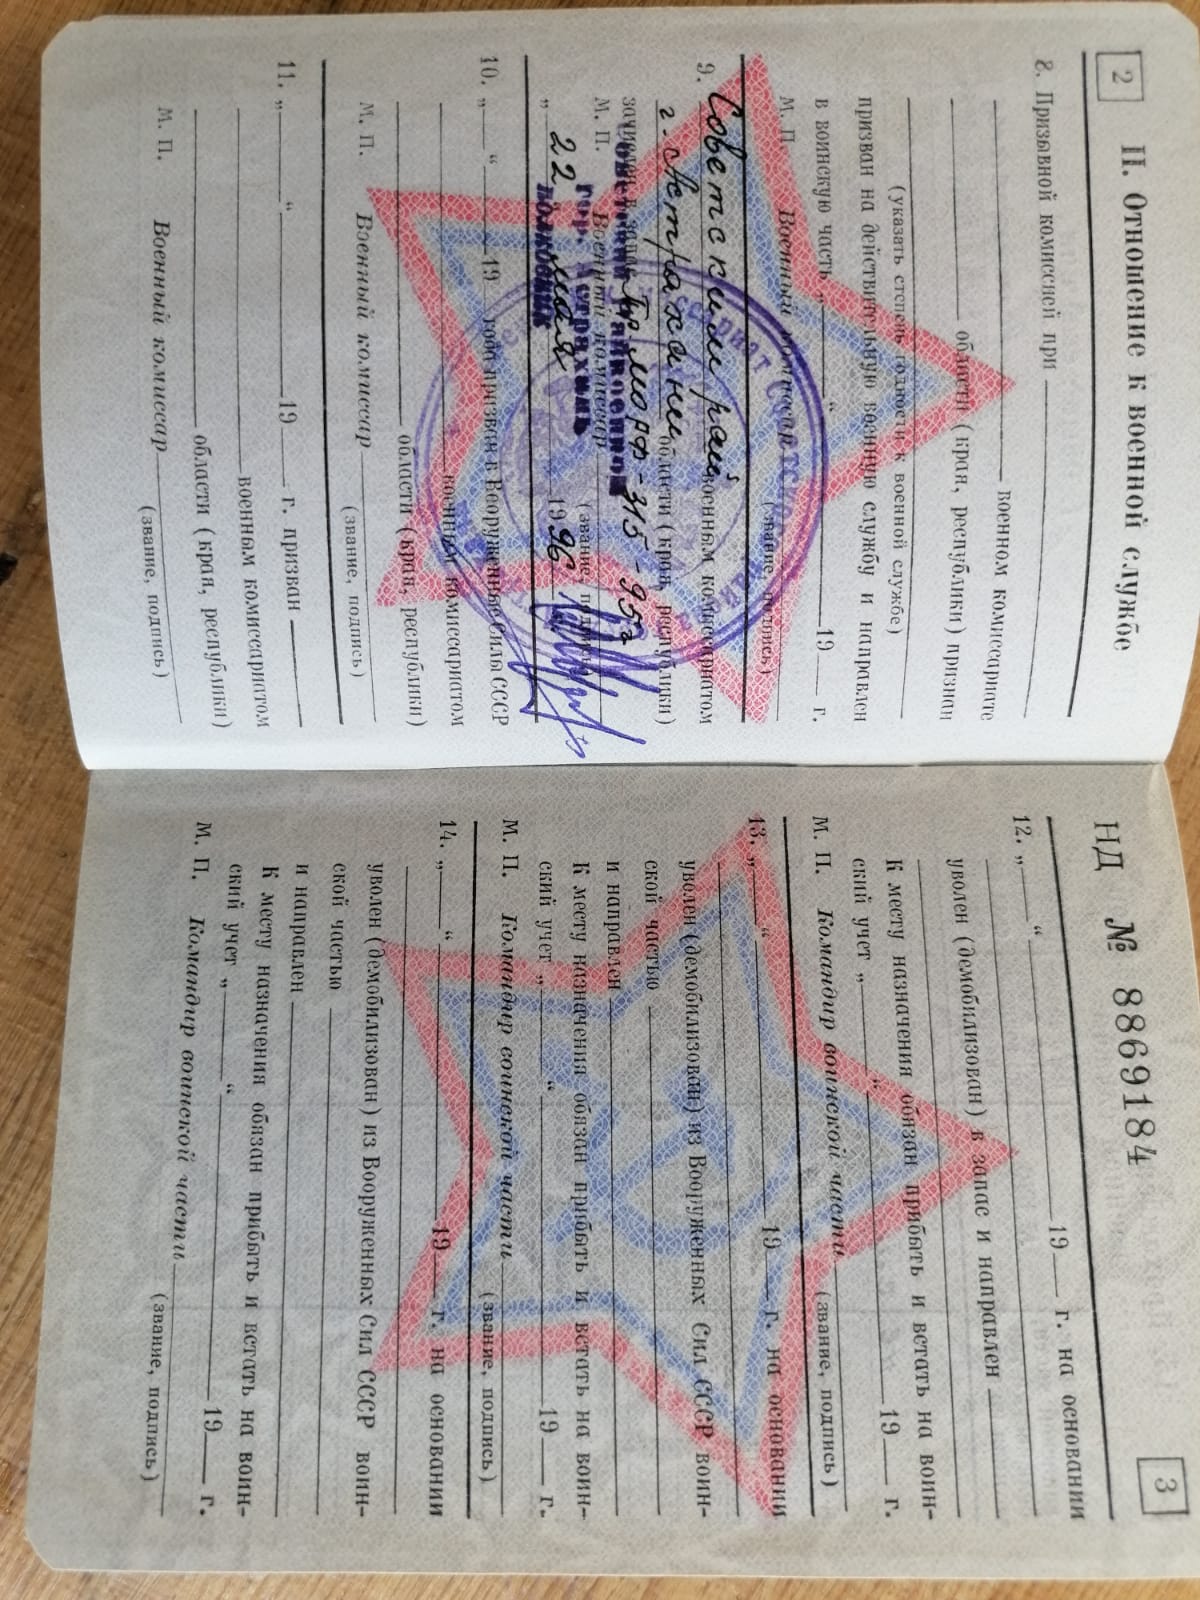 2
II. Отношение к военной службе
8. Призывной комиссией при
военном комиссариате
области (края, республики) признан
(указать степень годности к военной службе)
призван на действительную военную службу и направлен
в воинскую часть „ “ 19 г.
М. П. Военный комиссар
(звание, подпись)
9. Советским рай военным комиссариатом
г. Астрахани области (края, республики)
зачислен в запас пр. МОРФ-315-95г
Советский райвоенком
М. П. Военный комиссар
(звание, подпись)
гор. Астрахань
„ 22 мая 1996
полковник
10. „ “ 19 года призван в Вооруженные Силы СССР
военным комиссариатом
области (края, республики)
М. П. Военный комиссар
(звание, подпись)
11. „ “ 19 г. призван
военным комиссариатом
области (края, республики)
М. П. Военный комиссар
(звание, подпись)
НД № 8869184
3
12. „ “ 19 г. на основании
уволен (демобилизован) в запас и направлен
К месту назначения обязан прибыть и встать на воин-
ский учет „ “ 19 г.
М. П. Командир воинской части
(звание, подпись)
13. „ “ 19 г. на основании
уволен (демобилизован) из Вооруженных Сил СССР воин-
ской частью
и направлен
К месту назначения обязан прибыть и встать на воин-
ский учет „ “ 19 г.
М. П. Командир воинской части
(звание, подпись)
14. „ “ 19 г. на основании
уволен (демобилизован) из Вооруженных Сил СССР воин-
ской частью
и направлен
К месту назначения обязан прибыть и встать на воин-
ский учет „ “ 19 г.
М. П. Командир воинской части
(звание, подпись)